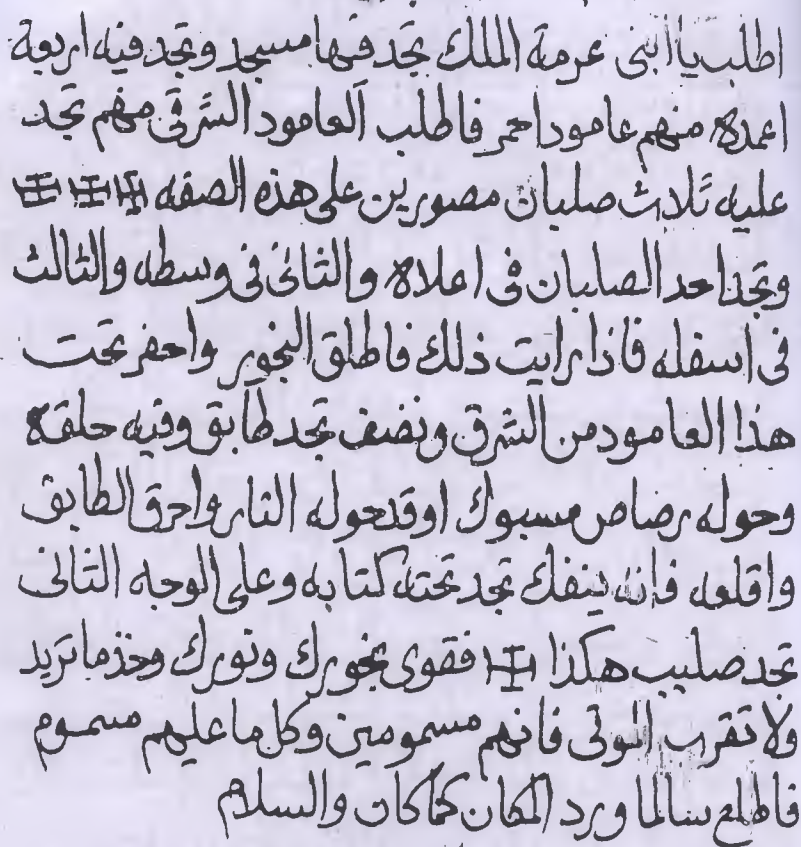 اطلب ياابنى عرمة الملك تجد فيها مسجد وتجد فيه اربعة
اعمدة منهم عامود احمر فاطلب العامود الشرقى منهم تجد
عليه ثلاث صلبان مصورين على هذه الصفه
وتجد احد الصلبان فى اعلاه والثانى فى وسطه والثالث
فى اسفله فاذا رايت ذلك فاطلق البخور واحفر تحت
هذا العامود من الشرق ونصف تجد طابق وفيه حلقه
وحوله رصاص مسبوك اوقد حوله النار واحرق الطابق
واقلعه فانه ينفك تجد تحته كتابه وعلى الوجه الثانى
تجد صليب هكذا فقوى بخورك ونورك وخذ ما تريد
ولا تقرب الموتى فانهم مسمومين وكل ما عليهم مسموم
فاطلع سالما ورد المكان كما كان والسلام